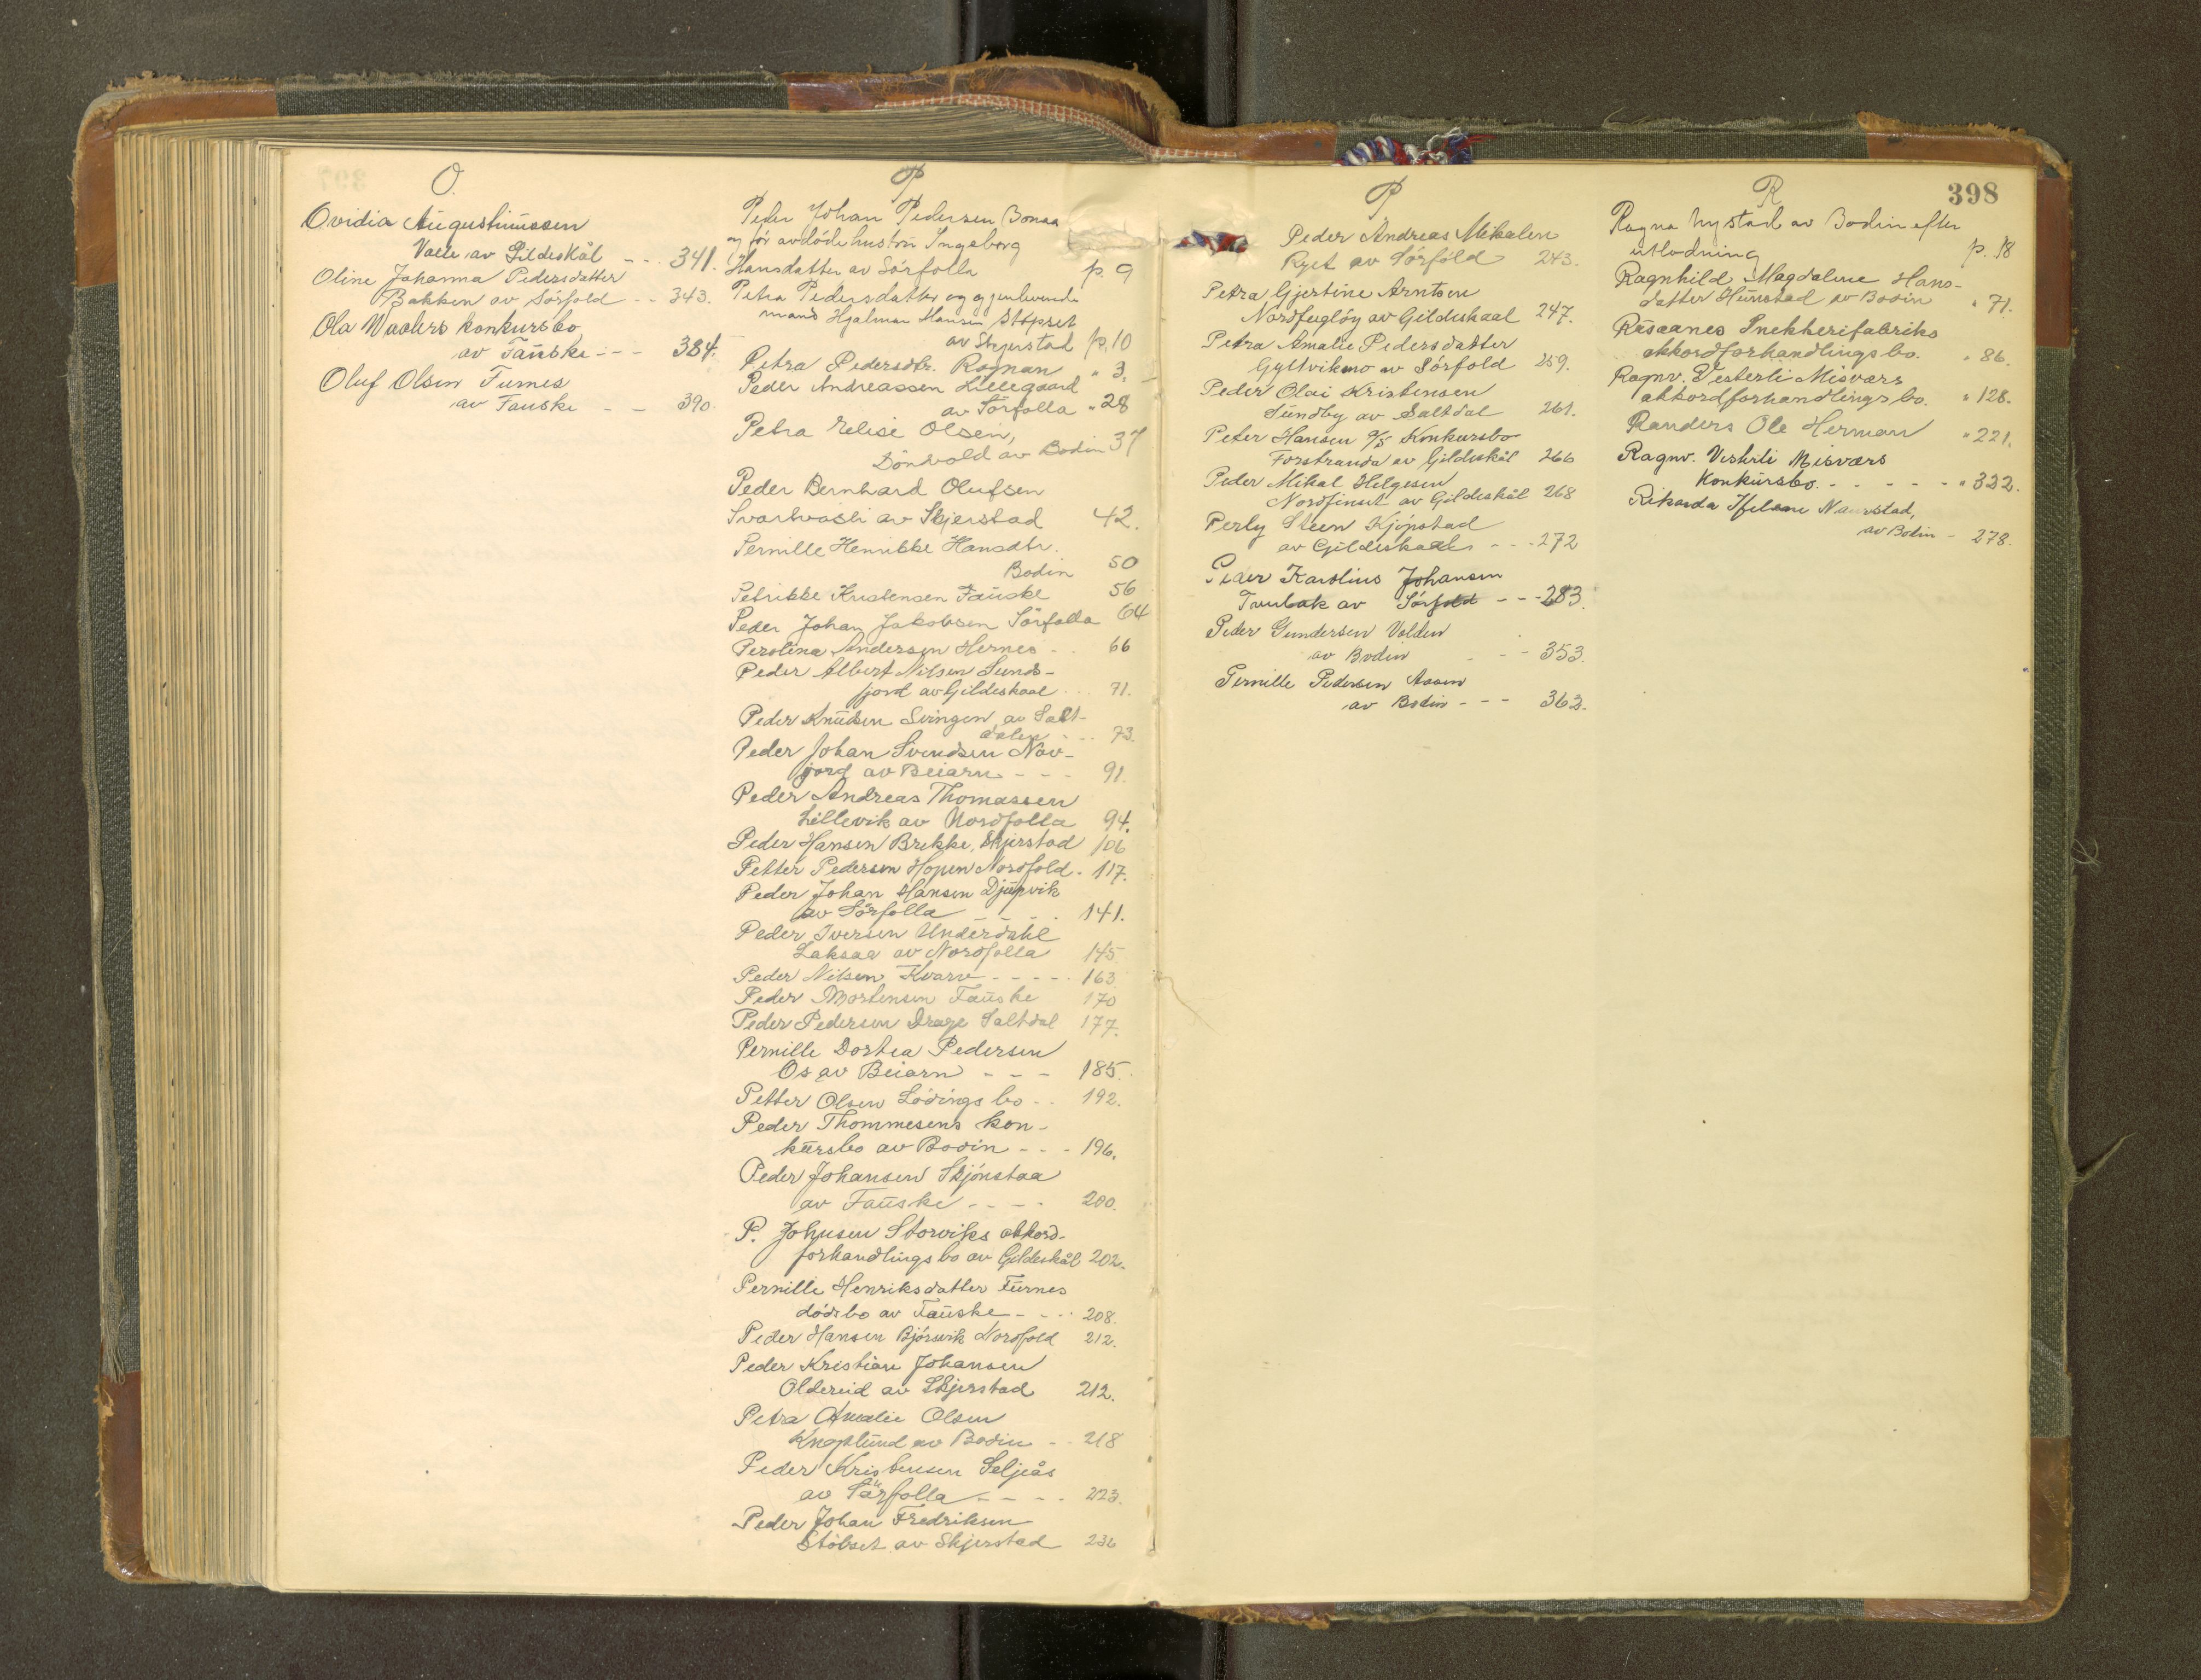 O.
Ovidia Augustinussen
Valle av Gildeskål - - 341.
Oline Johanna Pedersdatter
Bakken av Sörfold - - 343.
Ola Waalers konkursbo
av Fauske - - - 384.
Oluf Olsen Furnes
av Fauske - - 390.
P
Peder Johan Pedersen Bonaa
og för avdöde hustru Ingeborg
Hansdatter av Sörfolla p. 9
Petra Pedersdatter og gjenlevende
mand Hjalmar Hansen Støpset
av Skjerstad p. 10
Petra Pedersdtr. Rognan " 3.
Peder Andreassen Lillegaard
av Sörfolla " 28
Petra Elise Olsen,
Löndvold av Bodin 37
Peder Bernhard Olufsen
Svartvasli av Skjerstad 42.
Pernille Henrikke Hansdtr.
Bodin 50
Petrikke Kristensen Fauske 56
Peder Johan Jakobsen Sörfolla 64
Perolina Andersen Hernes - . 66
Peder Albert Nilsen Sund-
fjord av Gildeskaal . . . 71.
Peder Knudsen Svingen av Salt-
dalen - . . 73.
Peder Johan Svendsen Nav-
jord av Beiarn - - - 91.
Peder Andreas Thomassen
Lillevik av Nordfolla 94.
Peder Hansen Brekke, Skjerstad 106
Petter Pedersen Hopen Nordfold - 117.
Peder Johan Hansen Djupvik
av Sörfolla - - - . 141.
Peder Iversen Underdahl
Laksaa av Nordfolla 145.
Peder Nilsen Kvarv - - - - 163
Peder Mortensen Fauske 170
Peder Pedersen Drage Saltdal 177.
Pernille Dortea Pedersen
Os av Beiarn - - - 185.
Petter Olsen Lödings bo . . 192.
Peder Thommesens kon-
kursbo av Bodin - - - 196.
Peder Johansen Skjönstaa
av Fauske - - - - 200.
P. Johnsen Storviks akkord-
forhandlings bo av Gildeskål 202.
Pernille Henriksdatter Furnes
dödsbo av Fauske - - - 208.
Peder Hansen Bjørsvik Nordfold 212.
Peder Kristian Johansen
Oldereid av Skjerstad 212.
Petra Amalie Olsen
Knaplund av Bodin - - 218
Peder Kristensen Seljeås
av Sörfolla - - - - 223.
Peder Johan Fredriksen
Stöbset av Skjerstad 236
P
Peder Andreas Mikalsen
Ryet av Sörfold 243.
Petra Gjertine Arntsen
Nordfuglöy av Gildeskaal 247.
Petra Amalie Pedersdatter
Gyltvikmo av Sörfold 259.
Peder Olai Kristensen
Sundby av Saltdal 261.
Peter Hansen A/S Konkursbo
Forstranda av Gildeskål 266
Peder Mikal Helgesen
Nordfinset av Gildeskål 268
Perly Steen Kjöpstad
av Gildeskaal - - - 272
Peder Karolius Johansen
av Sörfold - - - 283.
Peder Gundersen Valden
av Bodin - - - 353.
Pernille Pedersen Aasen
av Bodin - - - 363.
R
398
Ragna Nystad av Bodin efter
utlodning p. 18
Ragnhild Magdalene Hans-
datter Hunstad av Bodin " 71.
Råsaanes Snekkerifabriks
akkordforhandlings bo. " 86.
Ragnv. Vesterli Misværs
akkordforhandlings bo. " 128.
Randers Ole Herman " 221.
Ragnv. Vesterli Misværs
Konkursbo. - - - - - " 322.
Rikarda Naurstad,
av Bodin - 278.